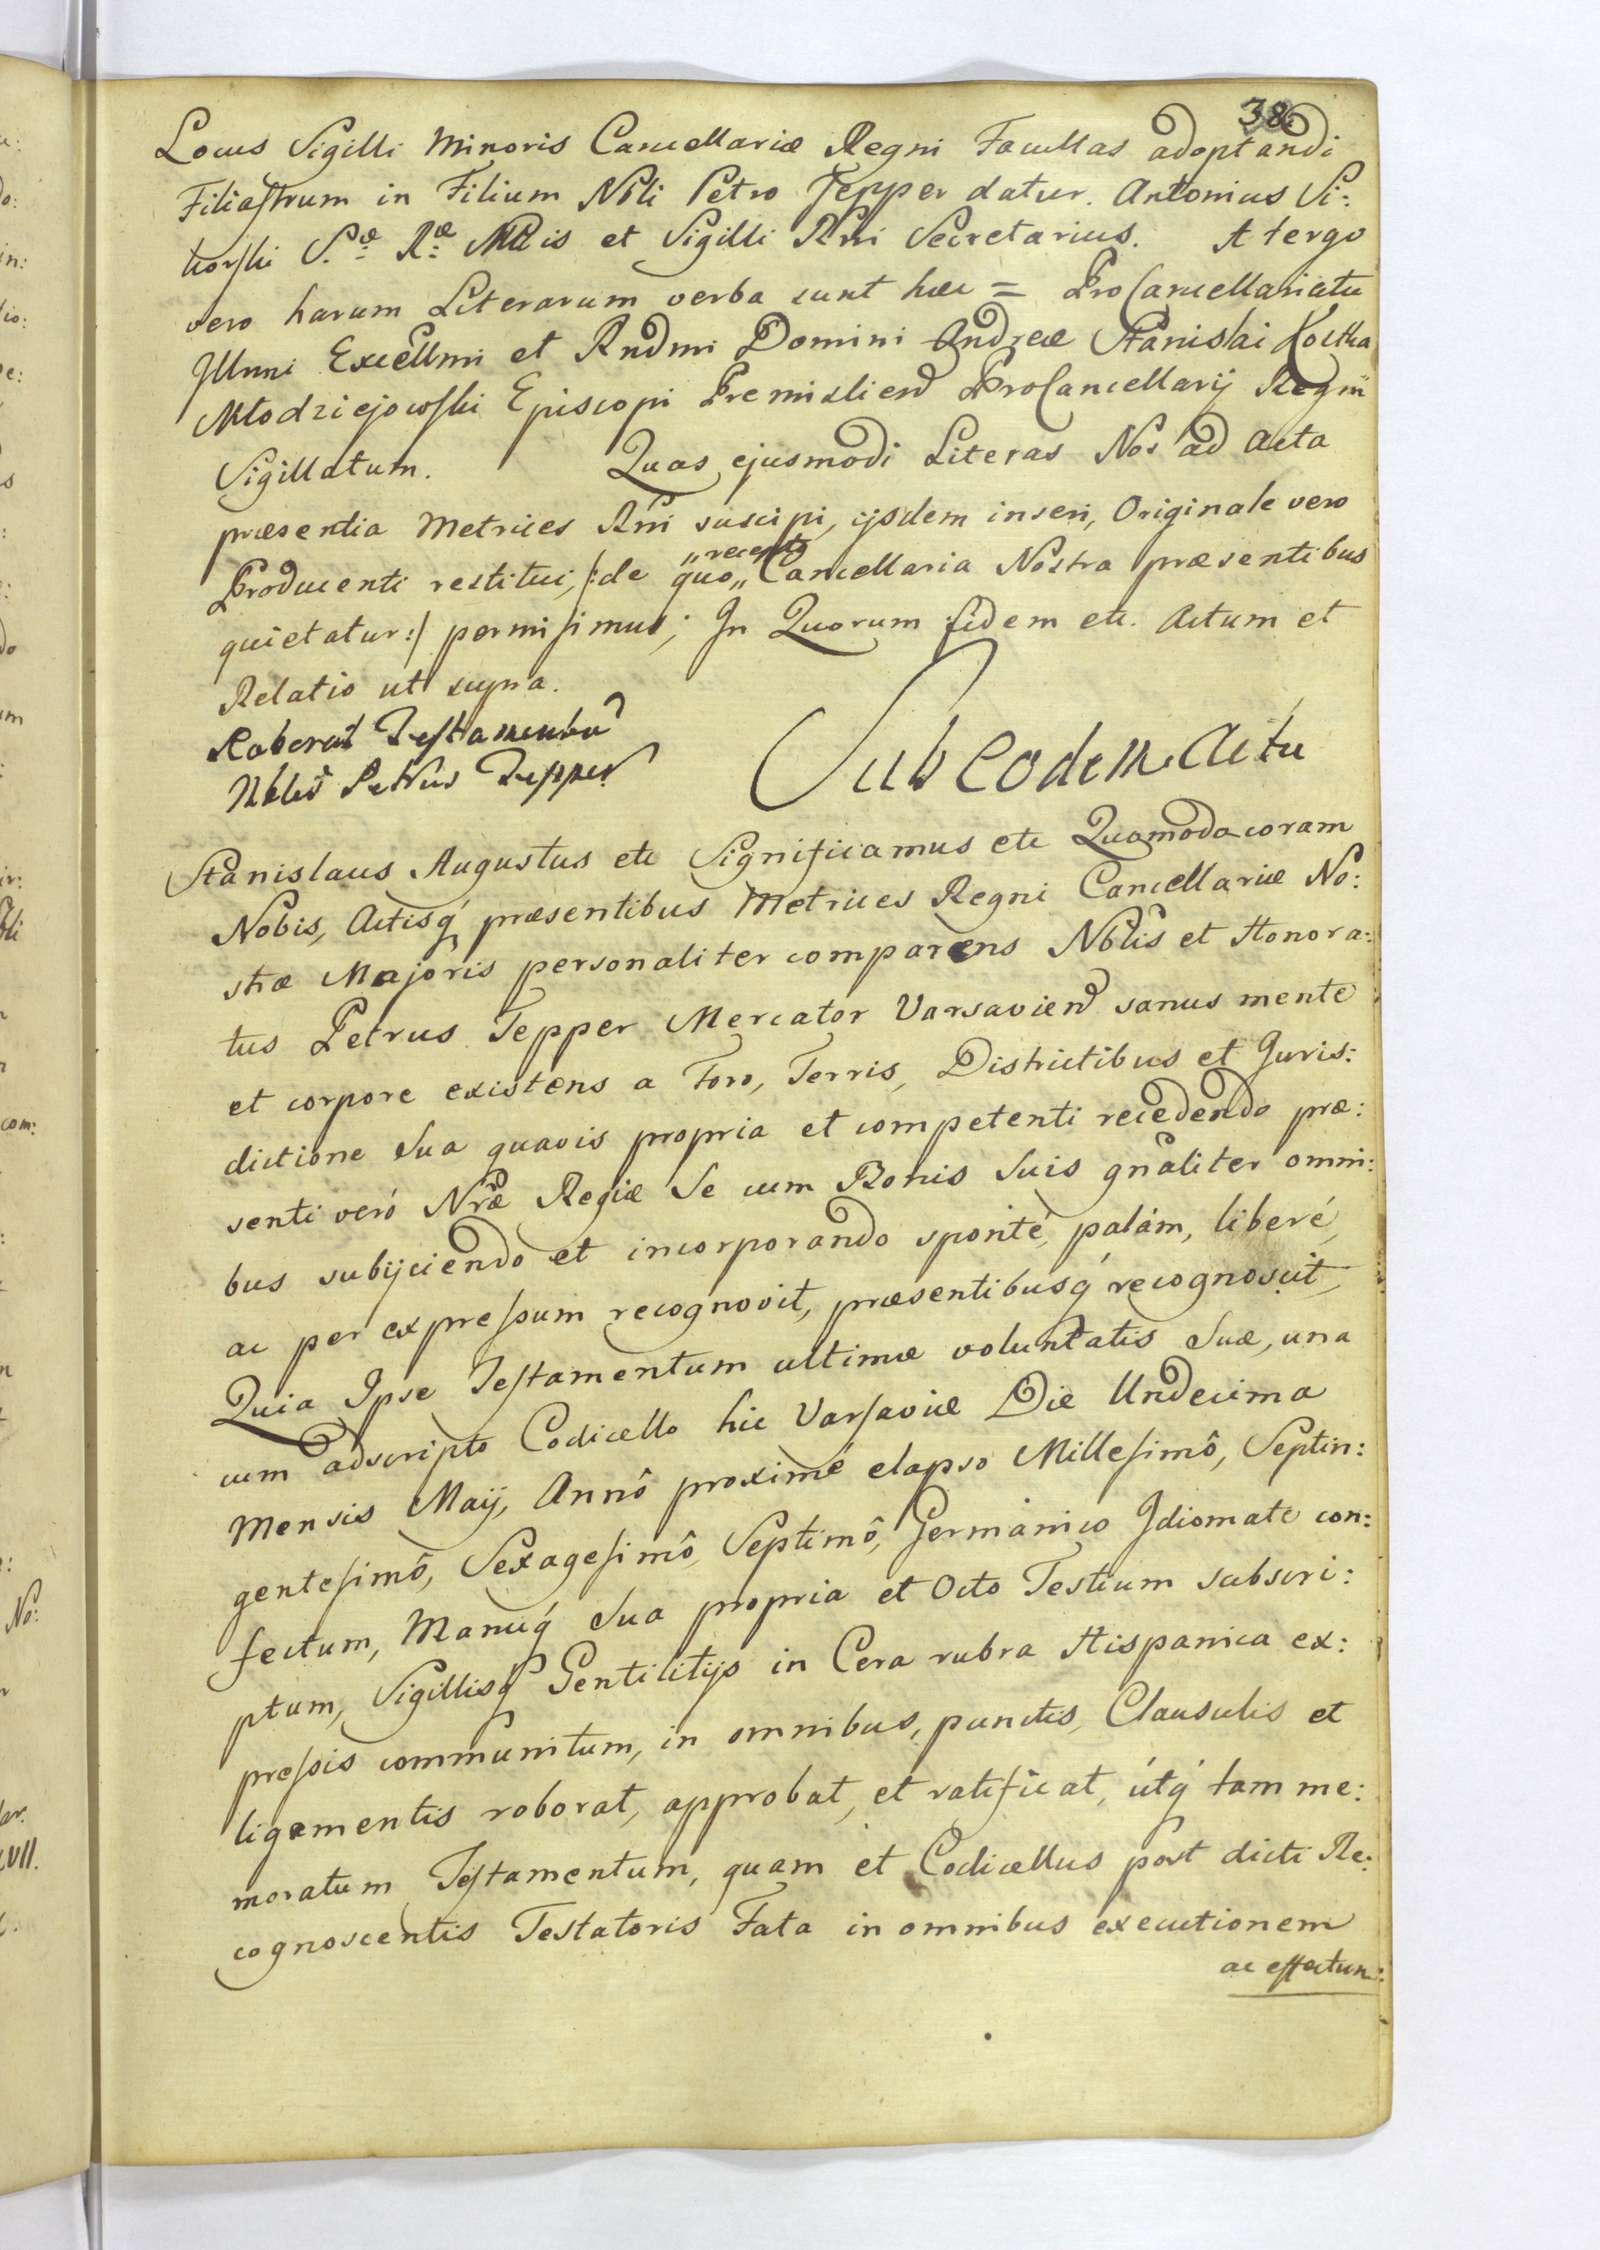 38.
Locus Sigilli Minoris Cancellariæ Regni Facultas adoptandi
Filiastrum in Filium Nbli Petro Tepper datur. Antonius Si:
korski S.æ R.æ Mtis et Sigilli Rni Secretarius. A tergo
vero harum Literarum verba sunt hæc = ProCancellariatu
Illmi Excellmi et Rndmi Domini Andreæ Stanislai Kostka
Młodziejowski Episcopi Premislien ProCancellarij Regni
Sigillatum. Quas ejusmodi Literas Nos ad Acta
præsentia Metrices Rni suscipi, ijsdem inseri, Originale vero
Producenti restitui, /:de quo „recepto„ Cancellaria Nostra præsentibus
quietatur:/ permisimus; In Quorum fidem etc. Actum et
Relatio ut supra.
Roborat Testamentum
Nblis Petrus Tepper
Sub eodem Actu
Stanislaus Augustus etc Significamus etc Quomodo coram
Nobis, Actisq́ præsentibus Metrices Regni Cancellariæ No:
stræ Majoris personaliter comparens Nblis et Honora:
tus Petrus Tepper Mercator Varsavien sanus mente
et corpore existens a Foro, Terris, Districtibus et Juris:
dictione Sua quavis propria et competenti recedendo præ:
senti veró Nræ Regiæ Se cum Bonis Suis gnaliter omni:
bus subijciendo et incorporando sponté, palám, liberé,
ac per expressum recognovit, præsentibusq́ recognoscit,
Quia Ipse Testamentum ultimæ voluntatis Suæ, una
cum adscripto Codicello hic Varsaviæ Die Undecima
Mensis Maij, Annô proximé elapso Millesimô, Septin:
gentesimô, Sexagesimô, Septimô, Germanico Idiomate con:
fectum, Manuq́ Sua propria et Octo Testium subscri:
ptum, Sigillisq́ Gentilitijs in Cera rubra Hispanica ex:
pressis communitum, in omnibus, punctis, Clausulis et
ligamentis roborat, approbat, et ratificat, útq́ tam me:
moratum Testamentum, quam et Codicellus post dicti Re:
cognoscentis Testatoris Fata in omnibus executionem
ac effectum: